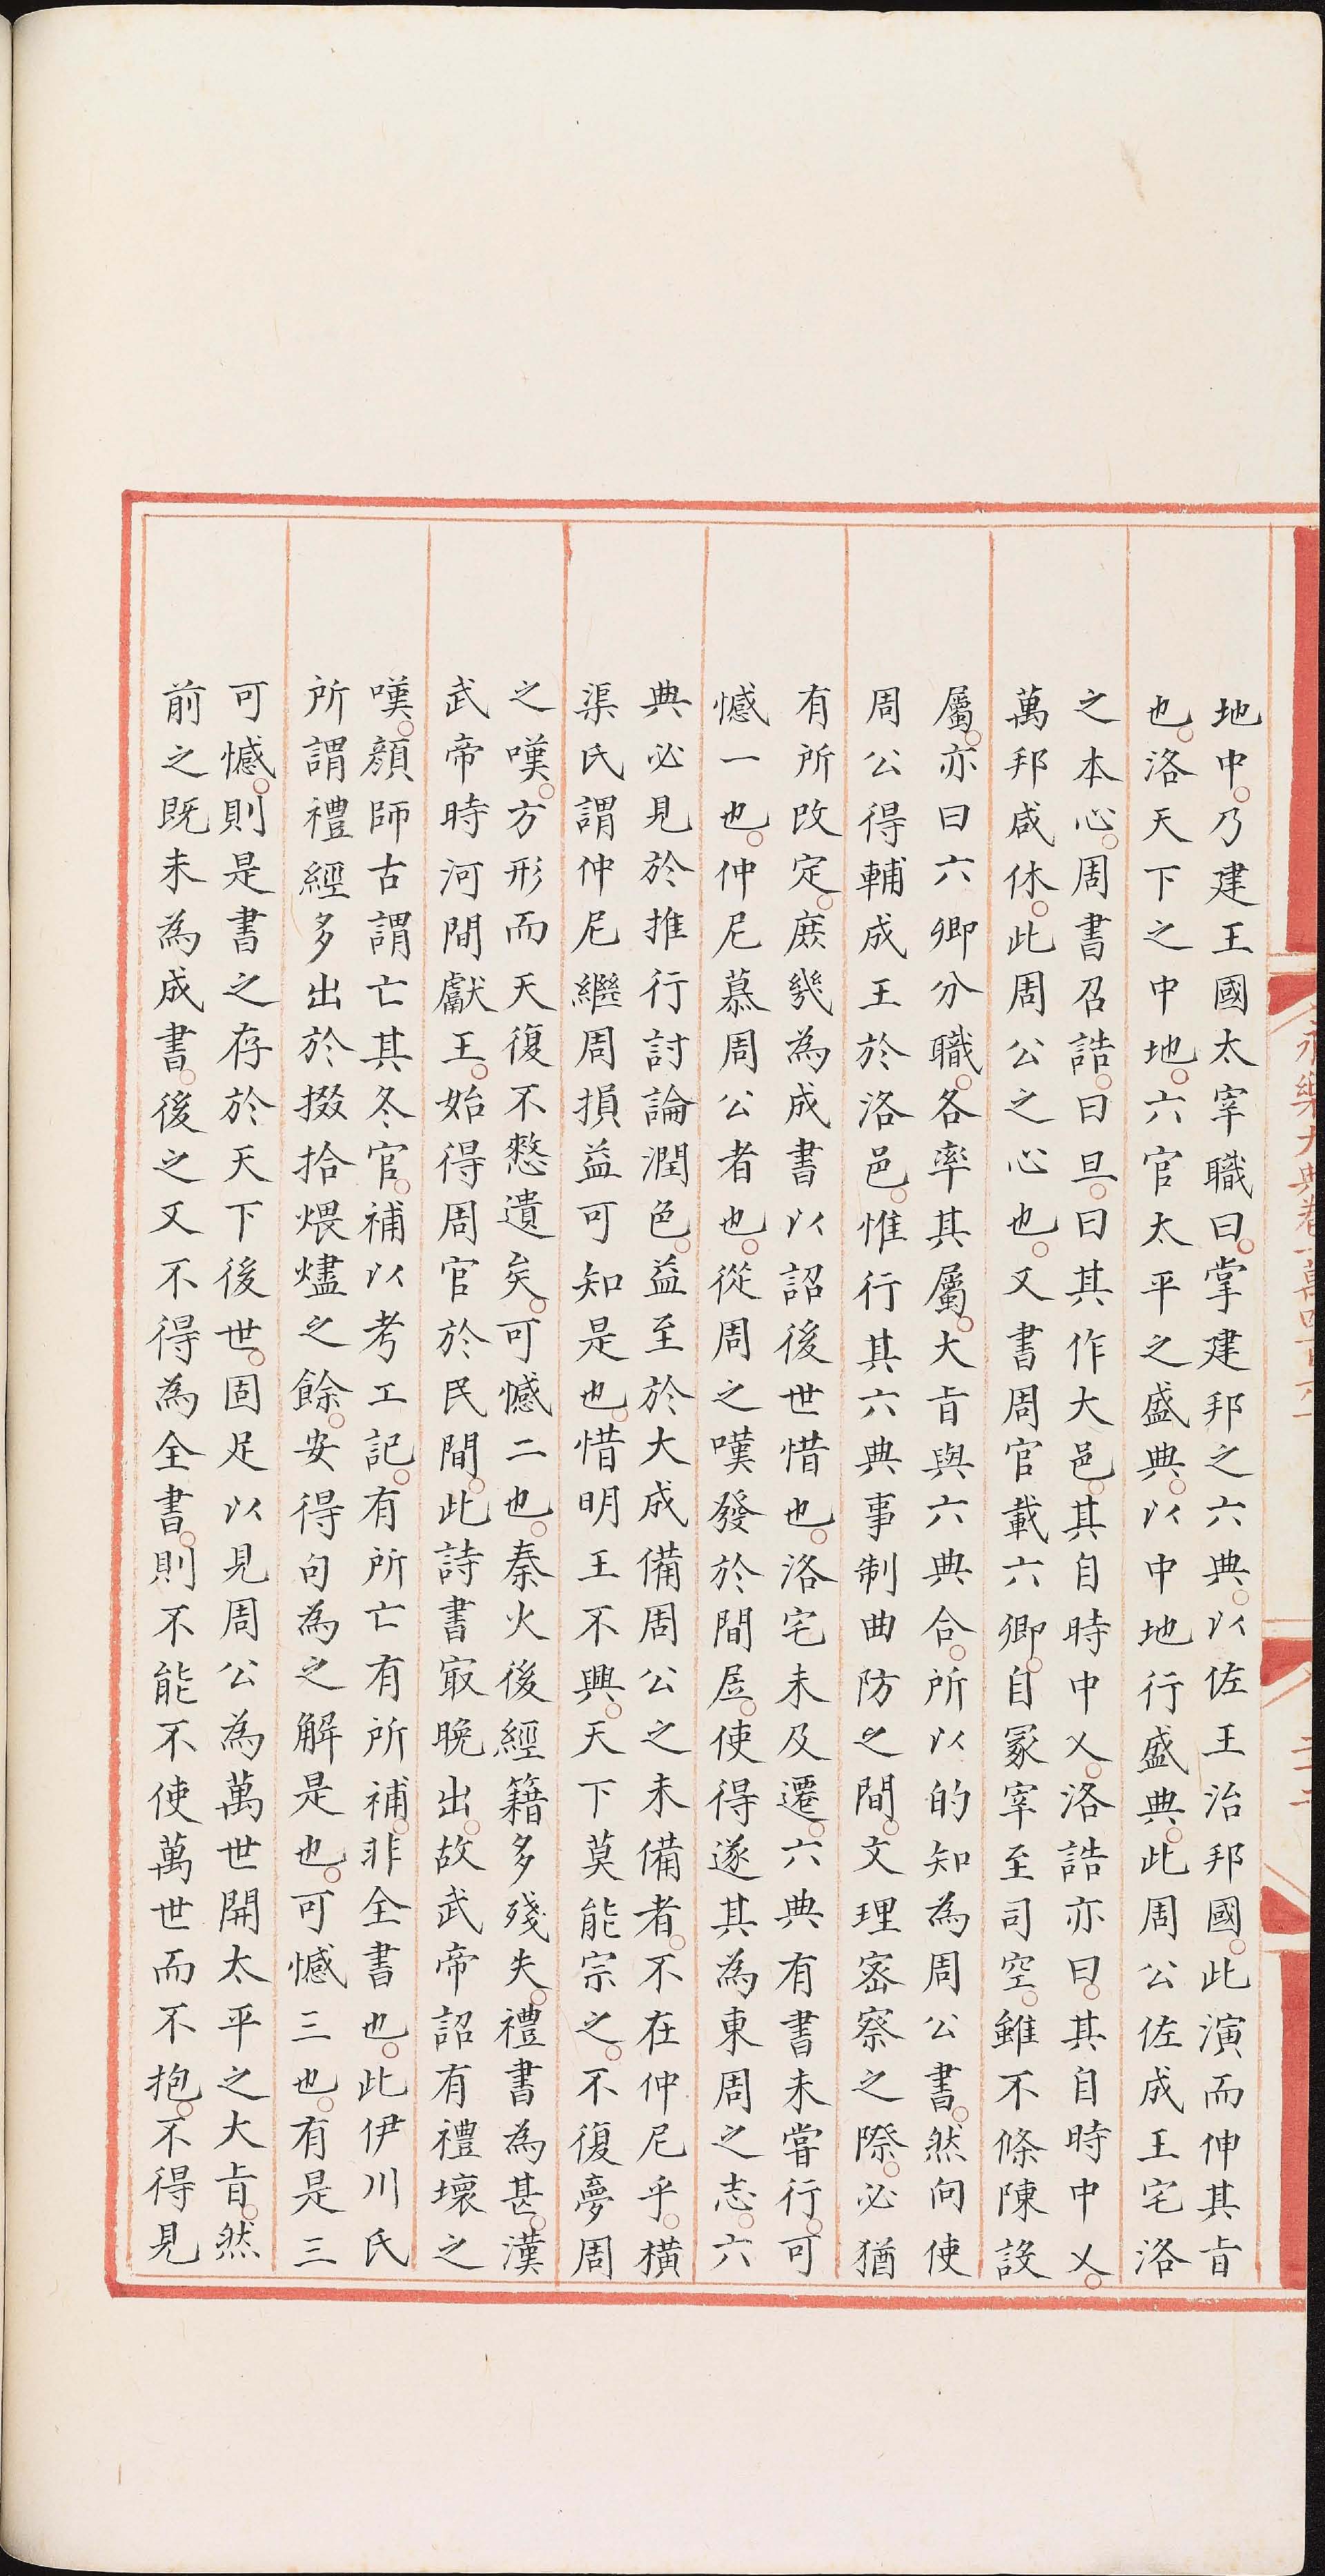 地中。乃建王國太宰職曰。掌建邦之六典。以佐王治邦國。此演而伸其㫖
也。洛天下之中地。六官太平之盛典。以中地行盛典。此周公佐成王宅洛
之本心。周書召誥。曰旦。曰其作大邑。其自時中乂。洛誥亦曰。其自時中乂。
萬邦咸休。此周公之心也。又書周官載六卿。自冡宰至司空。雖不條陳設
屬。亦曰六卿分職。各率其屬。大㫖與六典合。所以的知為周公書。然向使
周公得輔成王於洛邑。惟行其六典事制曲防之間。文理宻察之際。必猶
有所改定。庶幾為成書以詔後世惜也。洛宅未及遷。六典有書未嘗行。可
憾一也。仲尼慕周公者也。從周之嘆發於間居。使得遂其為東周之志。六
典必見於推行討論潤色。益至於大成備周公之未備者。不在仲尼乎。横
渠氏謂仲尼繼周損益可知是也。惜明王不興。天下莫能宗之。不復夢周
之嘆。方形而天復不憖遺矣。可憾二也。秦火後經籍多殘失。禮書為甚。漢
武帝時河間獻王。始得周官於民間。此詩書㝡晚出。故武帝詔有禮壞之
嘆。顏師古謂亡其冬官。補以考工記。有所亡有所補。非全書也。此伊川氏
所謂禮經多出於掇拾煨燼之餘。安得句為之解是也。可憾三也。有是三
可憾。則是書之存於天下後世。固足以見周公為萬世開太平之大㫖。然
前之既未為成書。後之又不得為全書。則不能不使萬世而不抱。不得見